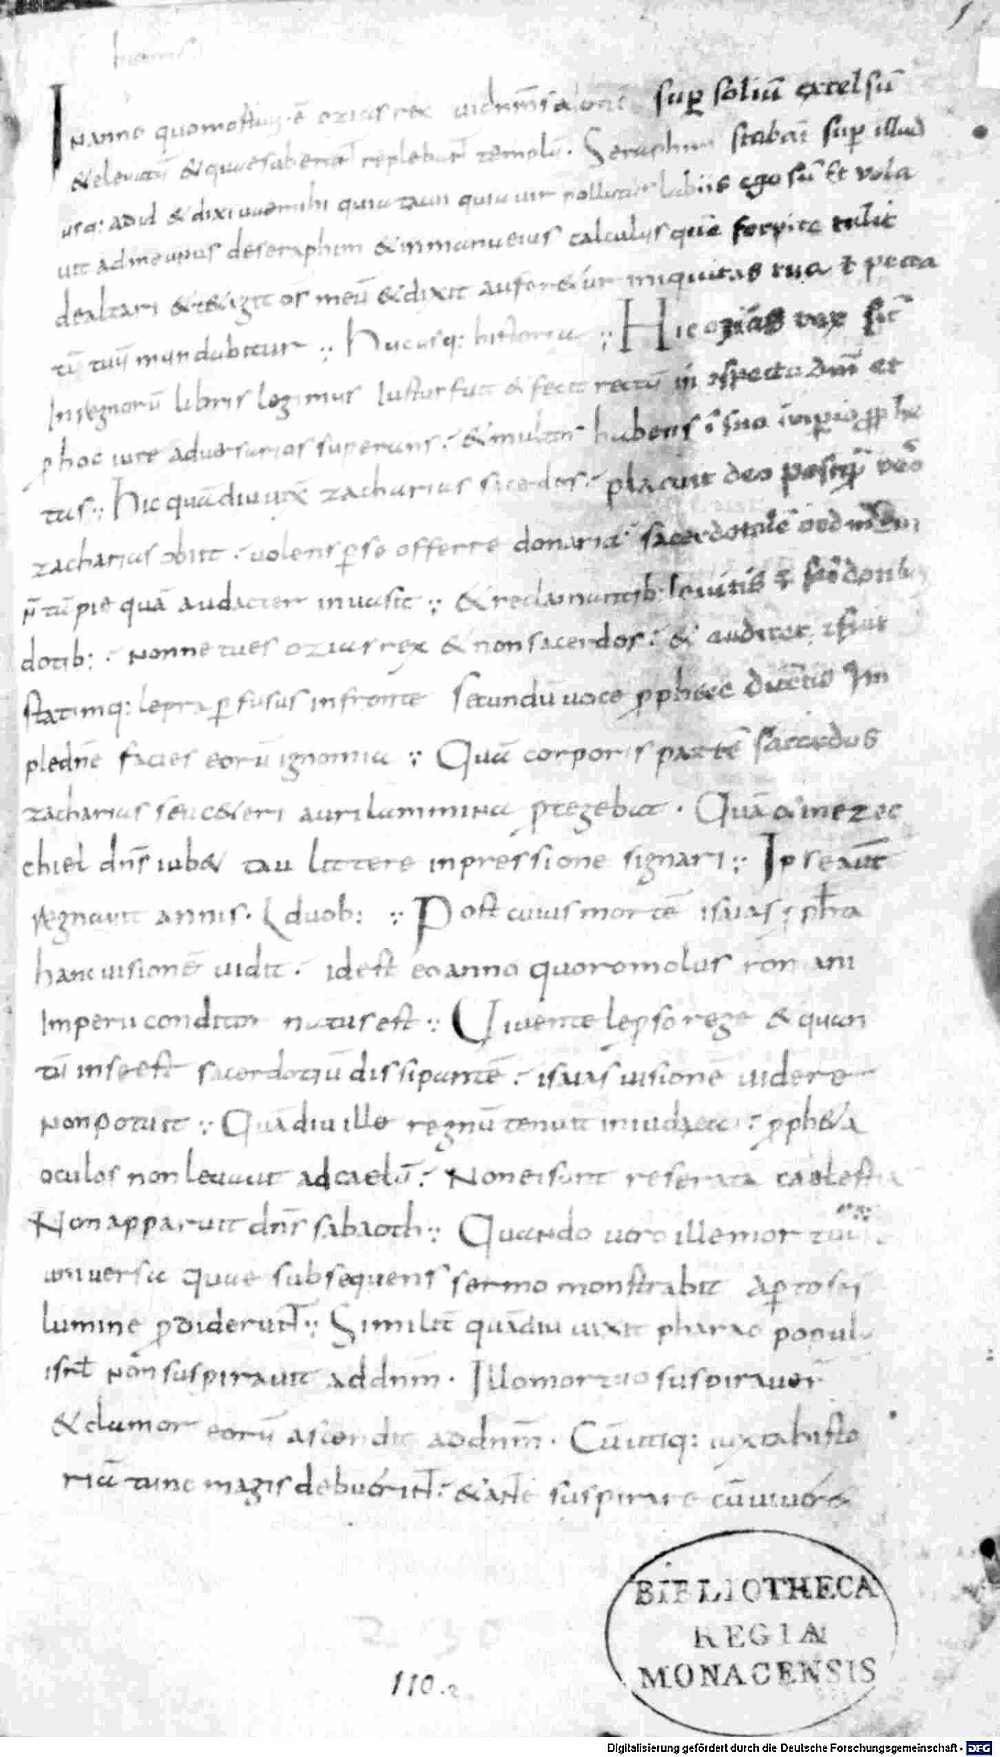 Inanno quomortuus·ē ozias rex uidi dnm̄ super soliū excelsū
& eleuatū & quae sub erant replebant templū. Seraphim stabāt sup illud
usq: ad id & dixi uae mihi quia tacui quia uir pollutis labiis ego sū Et uola
uit ad me unus de seraphim & in manu eius calculus quē forpice tulit
de altari & tetigit os meū & dixit auferetur iniquitas tua & pecca
tū tuū mundabitur :· Hucusq: historia :· Hic ozias rex sic̄
In regnorū libris legimus Iustus fuit & fecit rectū in cspectu dnī et
p hoc iure aduersarios superans & multa habens ī suo īperio pphe
tas :· Hic quādiu uix zacharias sacerdos placuit deo postquā uero
zacharias obiit uolens p se offerre donaria sacerdotale ordinē
n̄ tā pie quā audacter inuasit :· & reclamantib: leuitis &
dotib: Nonne tu es ozias rex & non sacerdos & audire
statimq: lepra pfusus in fronte secundū uoce pphete dicentis Im
ple dn̄e facies eorū ignomia :· Quā corporis partē sacerdos
zacharias seu ceteri auri lammina ptegebat. Quā & in ezec
chiel dn̄s iub& tau littere inpressione signari :· Ipse aut
regnauit annis. L duob: :· Post cuius mortē isaias ppha
hanc uisionē uidit id est eo anno quo romolus romani
Imperii conditor natus est :· Uiuente lepso rege & quan
tū in se est sacerdotiū dissipantē isaias uisionē uidere
Non potuit :· Quādiu ille regnū tenuit in iudaea pph&a
oculos non leuauit ad caelū Non ei sunt reserata caelestia
Non apparuit dn̄s sabaoth :· Quando uero ille mortuus
uniuersa quae subsequens sermo monstrabit aperto sei
lumine pdiderunt :· Similit quādiu uixit pharao popul
isrl Non suspirauit ad dnm̄. Illo mortuo suspirauer
& clamor eorū ascendit ad dnm̄. Cū utiq: iuxta histo
riā tunc magis debuerint & ante suspirare cū uiuere
110.
BIBLIOTHECA
REGIA
MONACENSIS
Digitalisierung gefördert durch die Deutsche Forschungsgemeinschaft - DFG